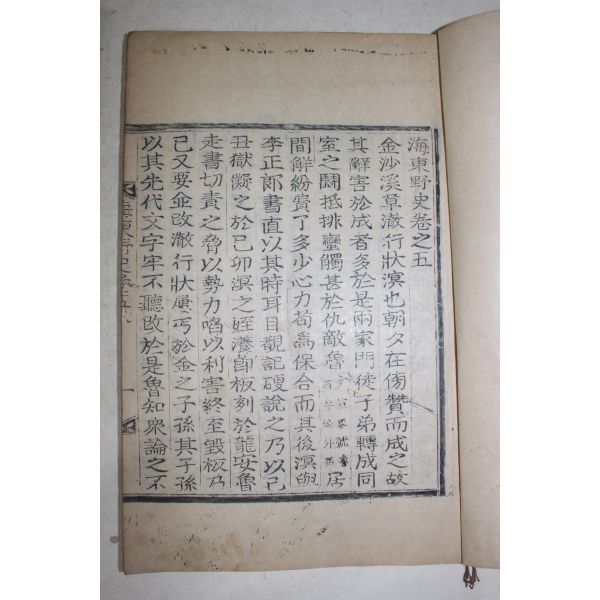 海東野史卷之五
金沙溪草澈行狀溟也朝夕在傍贊而成之故
其辭害於成者多於是兩家門徒子弟轉成同
室之鬪抵排蠻觸甚於仇敵魯居
間解紛費了多少心力苟爲保合而其後溟與
李正郎書直以其時耳目覩記硬說之乃以己
丑獄凝之於己卯溟之姪瀁卽板刻於龍安魯
走書切責之脅以勢力啗以利害終至毀板乃
已又要金改澈行狀屢丐於金之子孫其子孫
以其先代文字牢不聽改於是魯知衆論之不
一